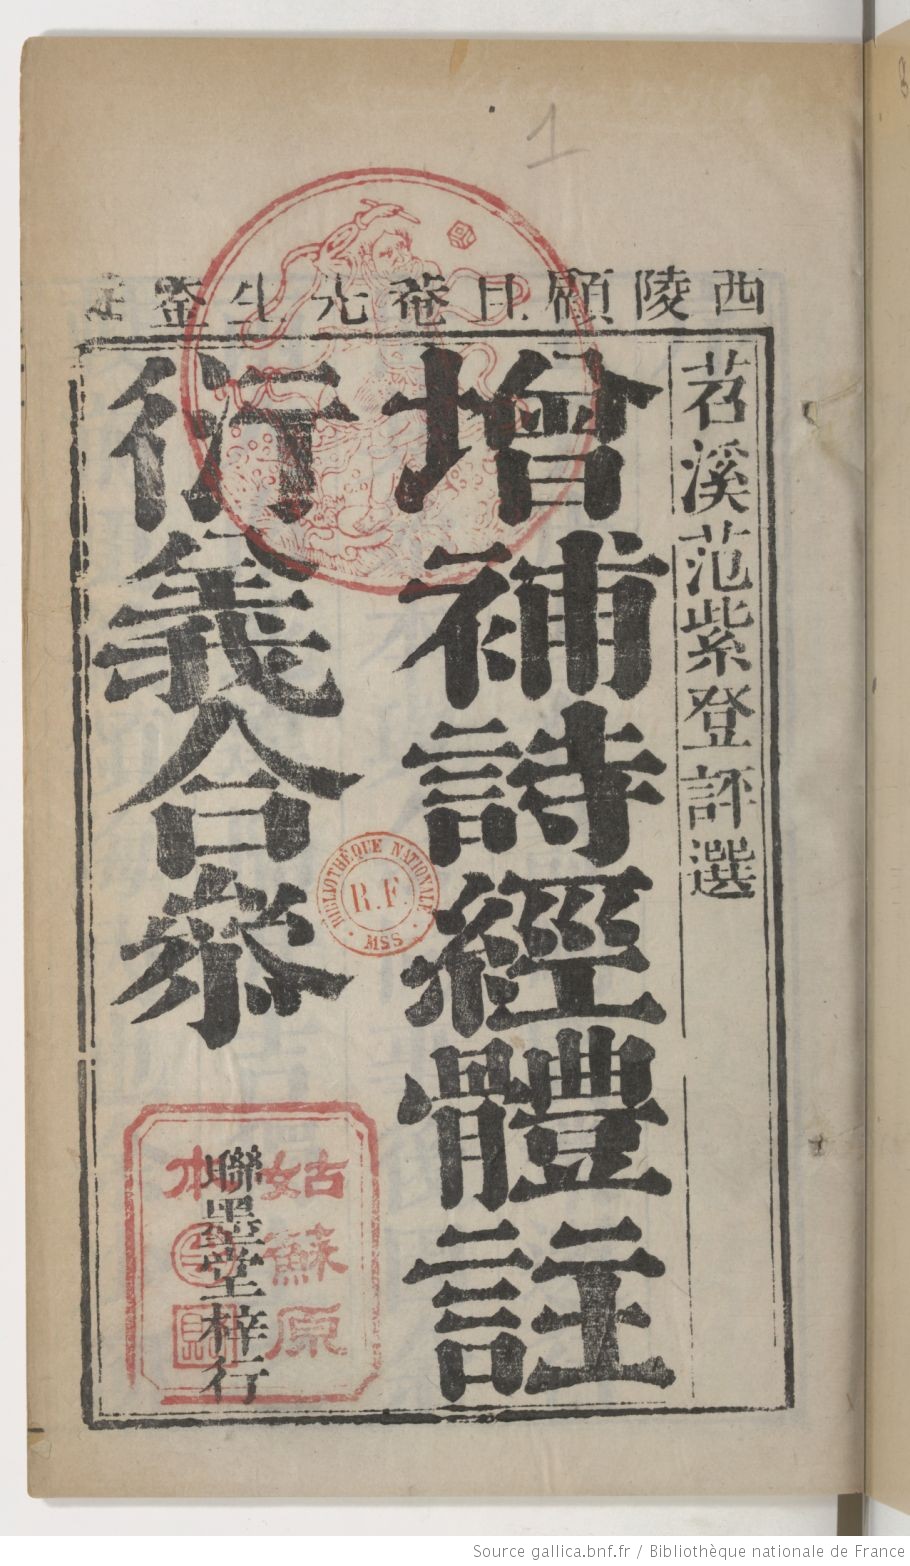 1
西陵顧且菴先生鑒定
苕溪范紫登評選
增補詩經體註
衍義合叅
聯墨堂梓行
姑蘇原
本
BIBLIOTHÈQUE NATIONALE
R.F.
MSS
Source gallica.bnf.fr / Bibliothèque nationale de France